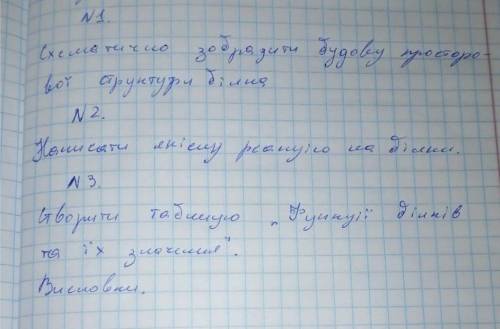 N1.
Схематично зобразити будову просторо-
вої структури білка
N2.
Написати якісну реакцію на білки.
N3.
Створити таблицю „Функції білків
та їх значення".
Висновки.